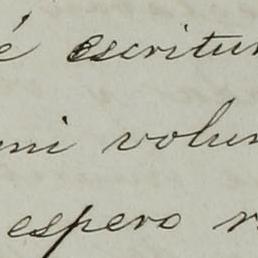 é escritur
mi volun
espero r